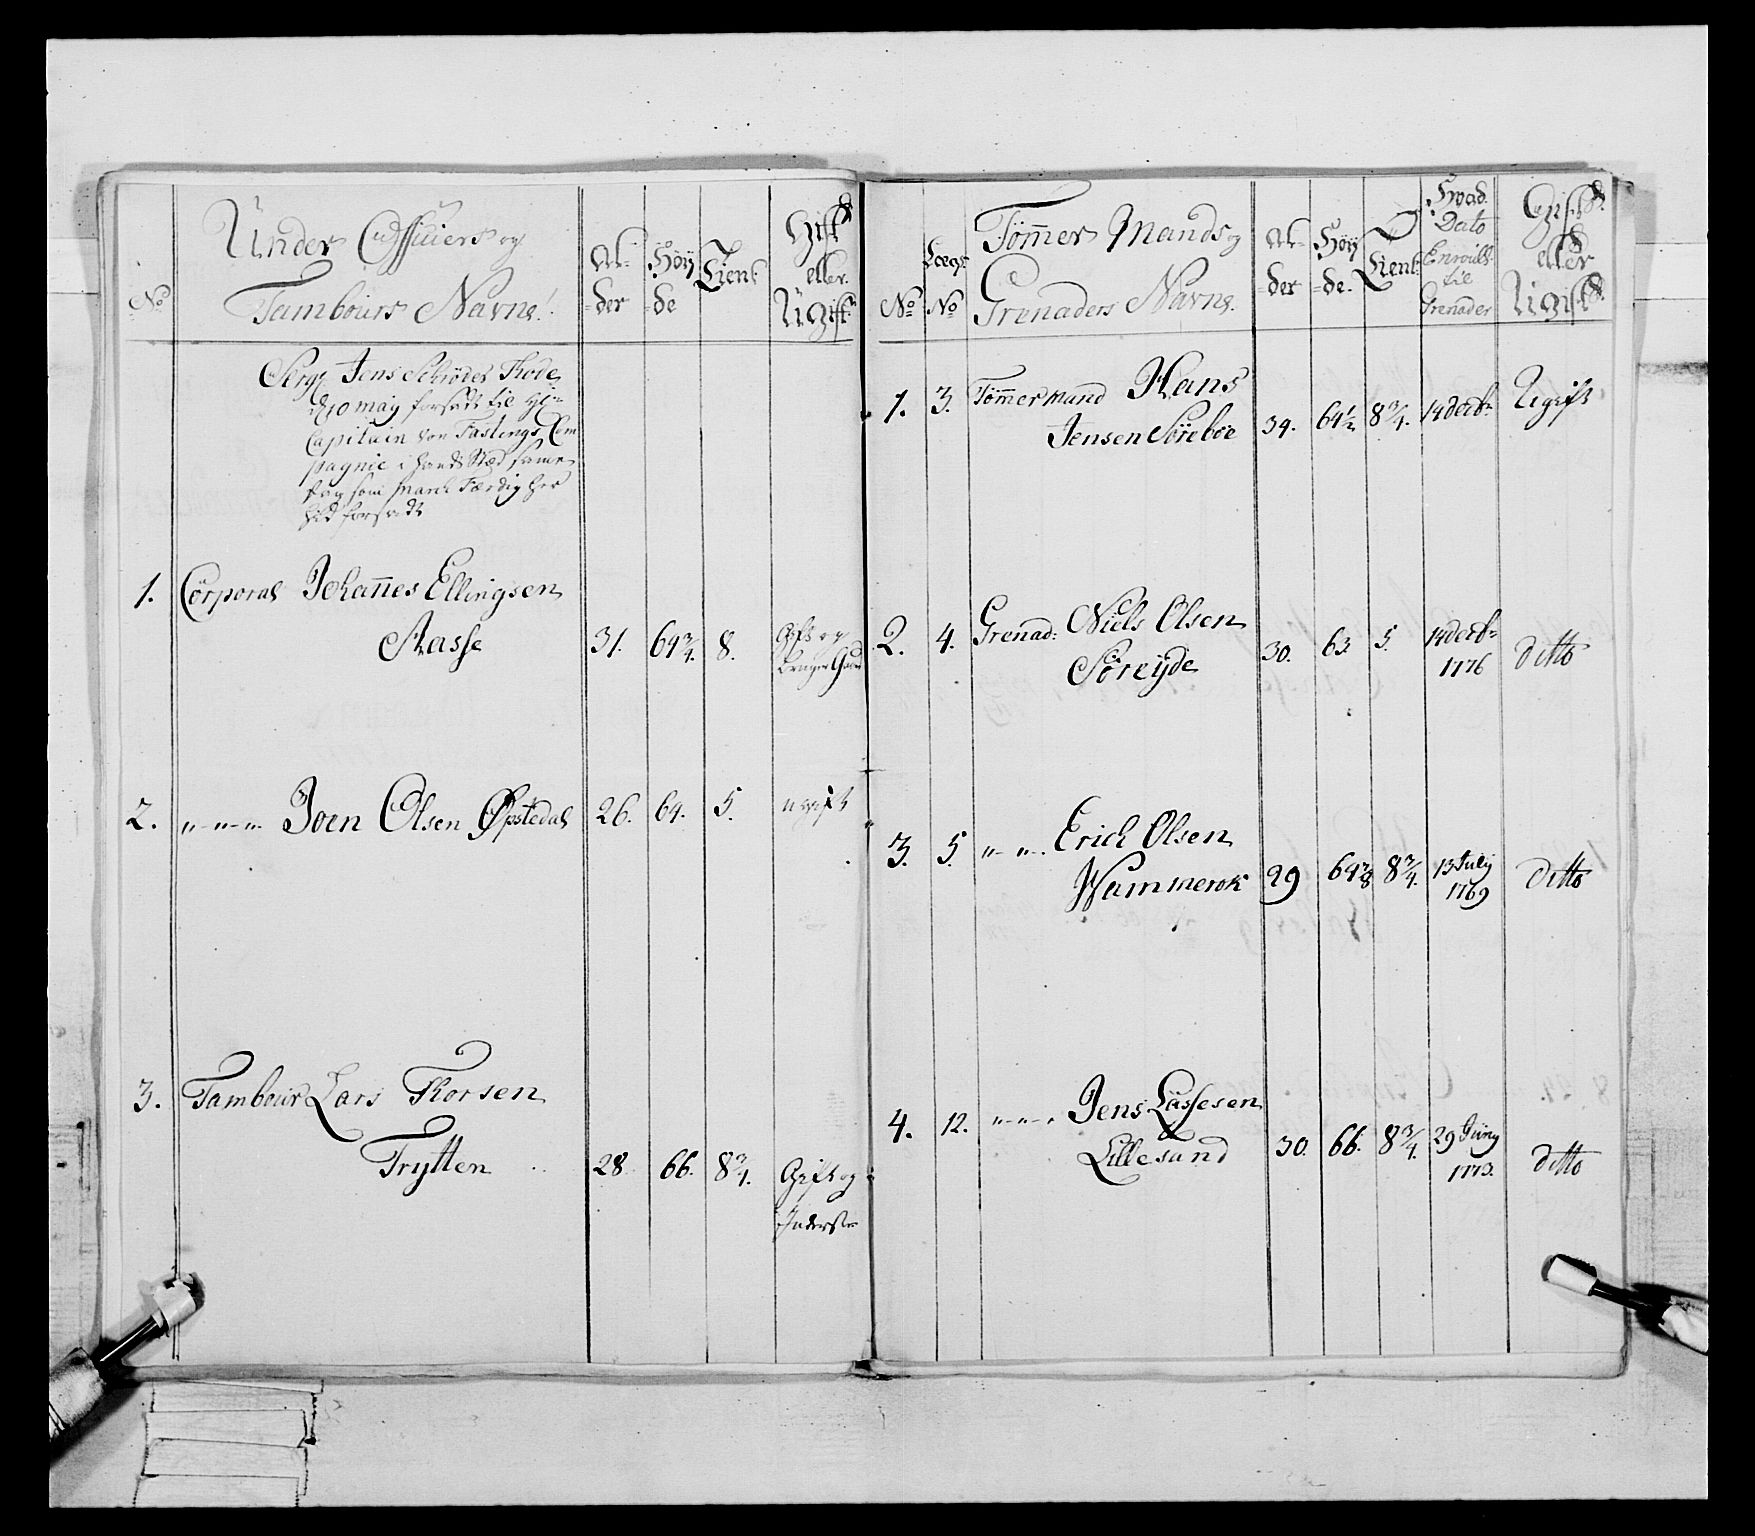 No
Under Officiers og
Tambours Navne.
Al-
-der
Høy
-de
Tient
Gift
eller
Ugift
Serg: Jens Schrøder Thode
d 10 may forsadt til Hr:
Capitain von Fastings Com
pagnie i hands Stæd
som March Færdig her
hid forsadt
1. Corporal Johannes Ellingsen
Aasse 31. 64 3/4. 8. Gift og
Bruger Gaard
2. " - " - " Joen Olsen Opstedal 26. 64. 5. ugift
3. Tambour Lars Thorsen
Trytten 28. 66. 8 3/4. Gift og
Inderste
No
Lægs
No
Tømmer Mands og
Grenaders Navne.
Al-
der
Høy
-de.
Tient
Hvad
Dato
Enroull:
til
Grenader
Gift
eller
Ugift
1. 3. Tømmermand Hans
Jensen Sørebøe 34. 64 1/2 8 3/4. 14 decbr Ugift
2. 4. Grenad: Niels Olsen
Søreyde 30. 63 5. 14 decbr
1776 ditto
3. 5. " - " - Erich Olsen
Wammerok 29 64 3/8 8 3/4. 13 July
1769 ditto
4. 12. " - " - Jens Lassesen
Lillesund 30. 66. 8 3/4. 29 Juny
1773. ditto